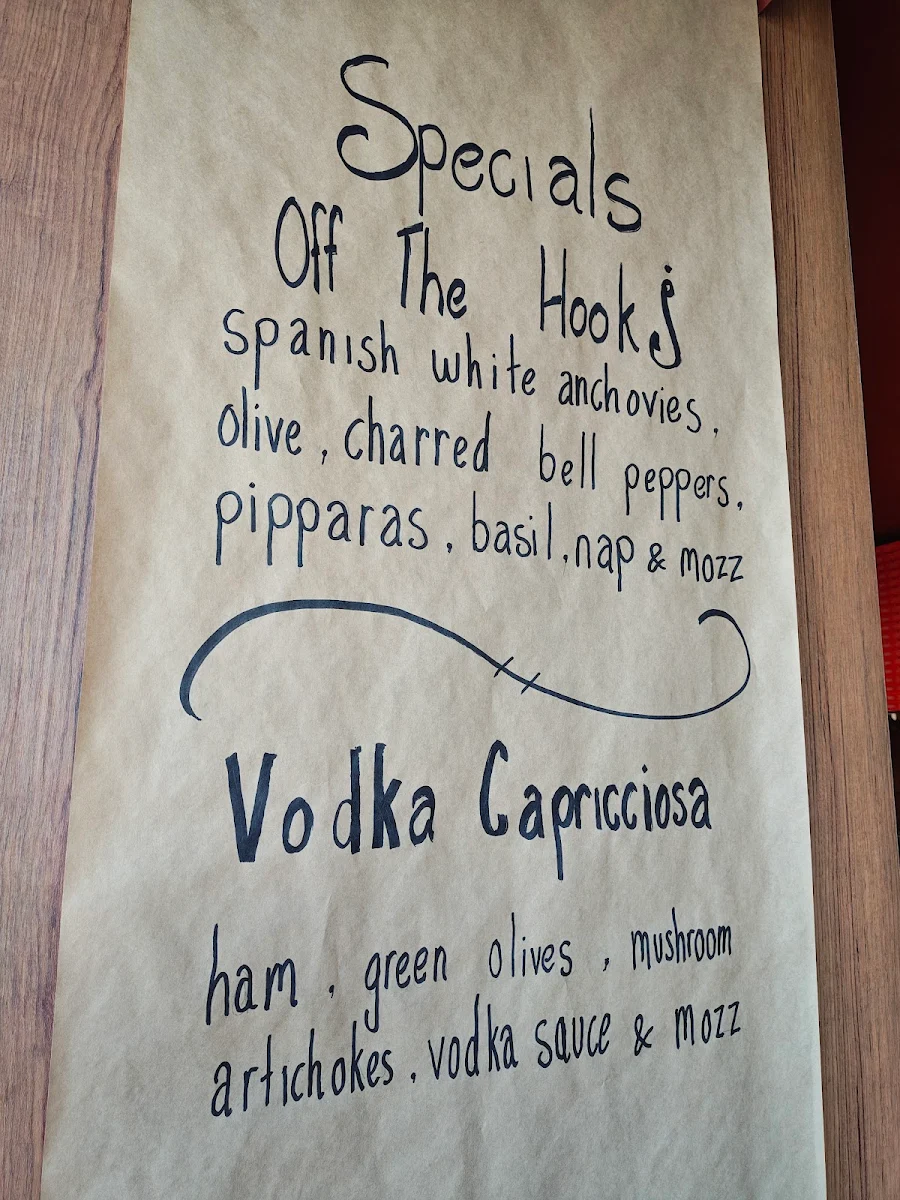 Specials
Off The Hook
spanish white anchovies,
olive, charred bell peppers,
pipparas, basil, nap & mozz
Vodka Capricciosa
ham, green olives, mushroom
artichokes, vodka sauce & mozz